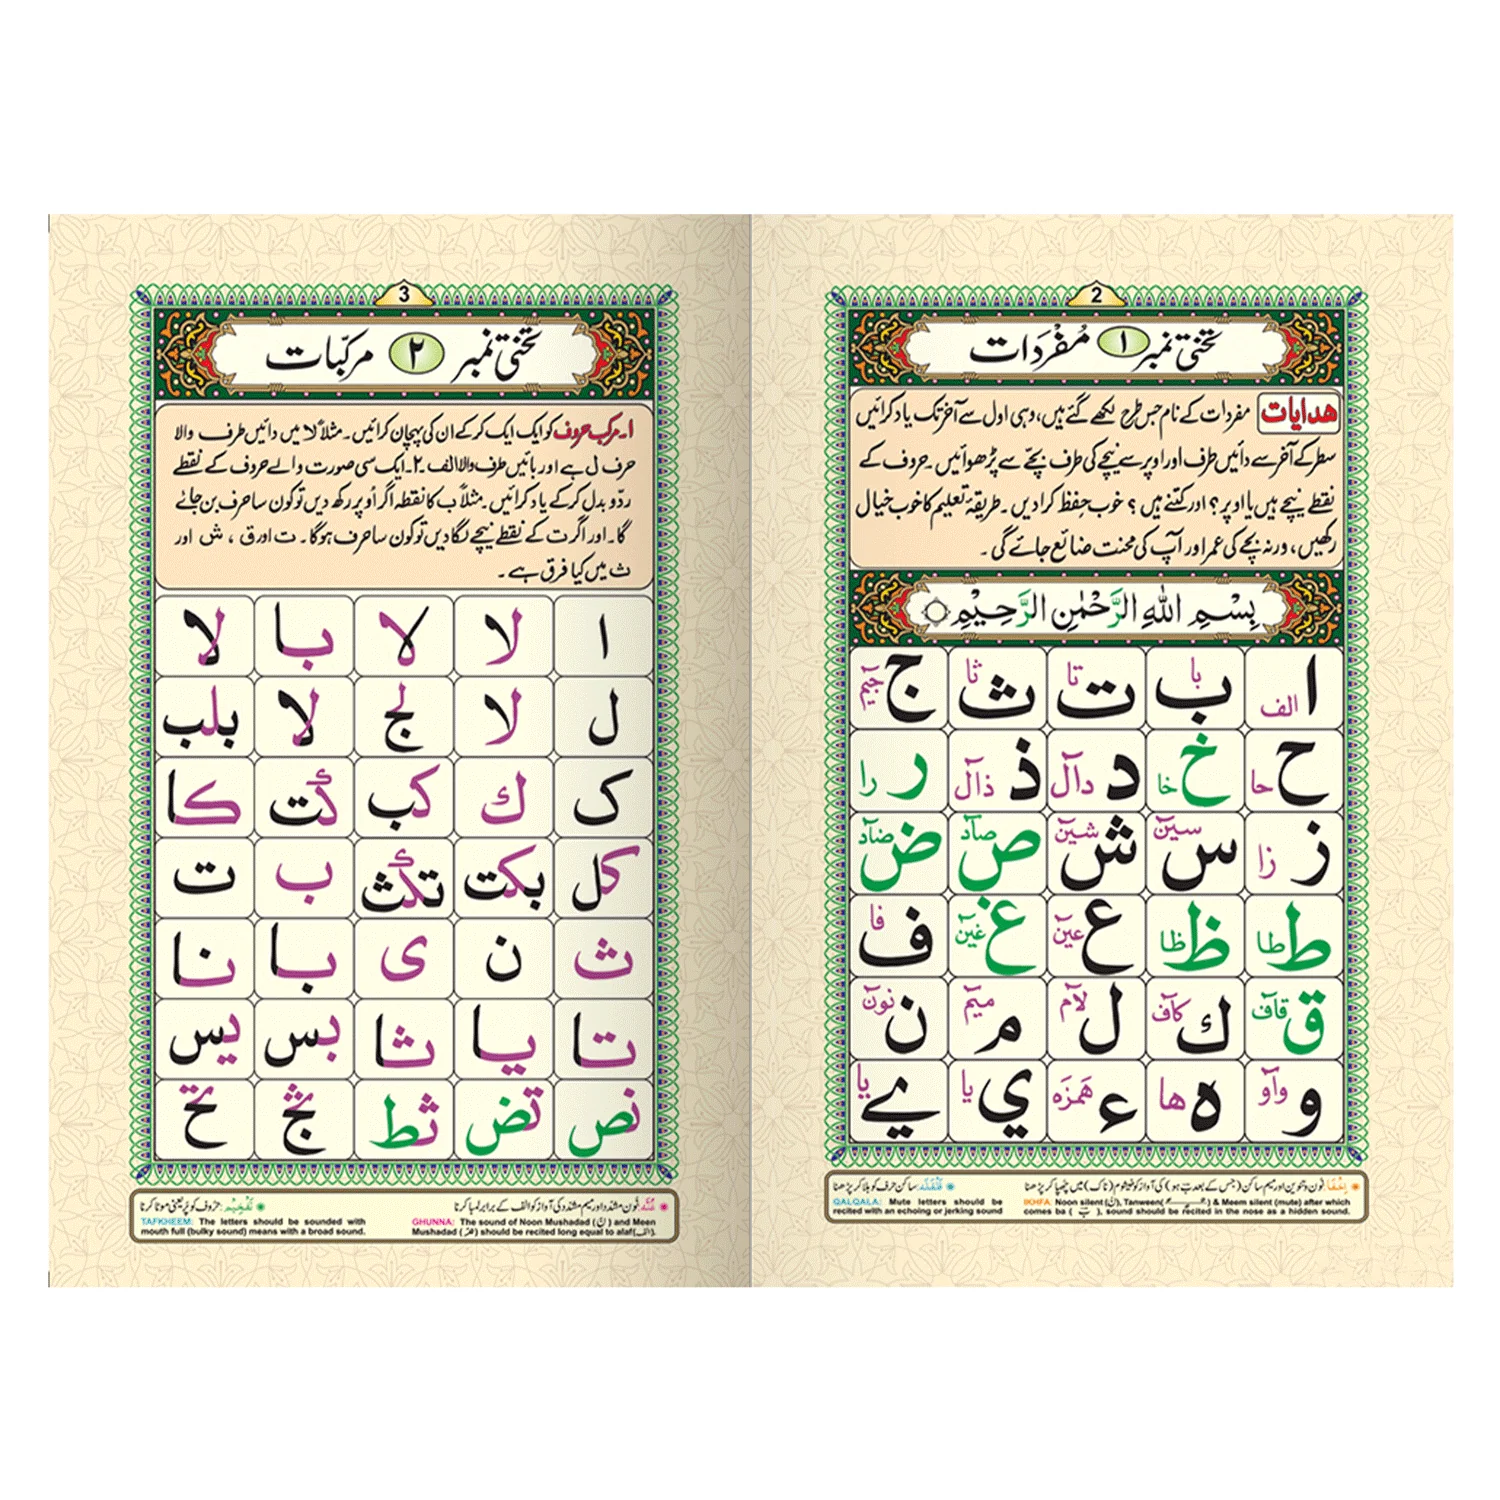 2
تختی نمبر ۱ مُفْرَدَات
هدایات مفردات کے نام جس طرح لکھے گئے ہیں، وہی اول سے آخر تک یاد کرائیں
سطر کے آخر سے دائیں طرف اور اوپر سے نیچے کی طرف بچّے سے پڑھوائیں۔ حروف کے
نقطے نیچے ہیں یا اوپر؟ اور کتنے ہیں؟ خوب حِفظ کرا دیں۔ طریقۂ تعلیم کا خوب خیال
رکھیں، ورنہ بچّے کی عمر اور آپ کی محنت ضائع جائے گی۔
بِسْمِ اللهِ الرَّحْمٰنِ الرَّحِیْمِ
ا الف ب با ت تا ث ثا ج جیٓم
ح حا خ خا د دآل ذ ذآل ر را
ز زا س سیٓن ش شیٓن ص صآد ض ضآد
ط طا ظ ظا ع عیٓن غ غیٓن ف فا
ق قآف ك كآف ل لآم م میٓم ن نوٓن
و وآو ہ ھا ء هَمزَہ ي یا ے یا
اِخْفَا نون و تنوین اور میم ساکن (جس کے بعد بے ہو) کی آواز کو خیشوم (ناک) میں چھپا کر پڑھنا
IKHFA: Noon silent (نْ), Tanween( ) & Meem silent (mute) after which
comes ba ( ب ), sound should be recited in the nose as a hidden sound.
قَلْقَلَه: ساکن حرف کو ہلا کر پڑھنا
QALQALA: Mute letters should be
recited with an echoing or jerking sound
3
تختی نمبر ۲ مرکبّات
۱۔ مرکب حروف کو ایک ایک کر کے ان کی پہچان کرائیں۔ مثلاً لا میں دائیں طرف والا
حرف ل ہے اور بائیں طرف والا الف۔ ۲۔ ایک سی صورت والے حروف کے نقطے
ردّ و بدل کر کے یاد کرائیں۔ مثلاً ب کا نقطہ اگر اُوپر رکھ دیں تو کون سا حرف بن جائے
گا۔ اور اگر ت کے نقطے نیچے لگا دیں تو کون سا حرف ہو گا۔ ت اور ق ، ش اور
ث میں کیا فرق ہے۔
ا لا لا با لا
ل لا لج لا بلب
ک ك كب گت كا
كل بكت تكث ب ت
ث ن ی با نا
تا یا ثا بس یس
نص تض ثط بج تح
غُنَّه: نون مشدد اور میم مشدد کی آواز کو الف کے برابر لمبا کرنا
GHUNNA: The sound of Noon Mushadad (نّ) and Meen
Mushadad (مّ) should be recited long equal to alaf(الف).
تَفْخِیْم: حروف کو پُر یعنی موٹا کرنا
TAFKHEEM: The letters should be sounded with
mouth full (bulky sound) means with a broad sound.